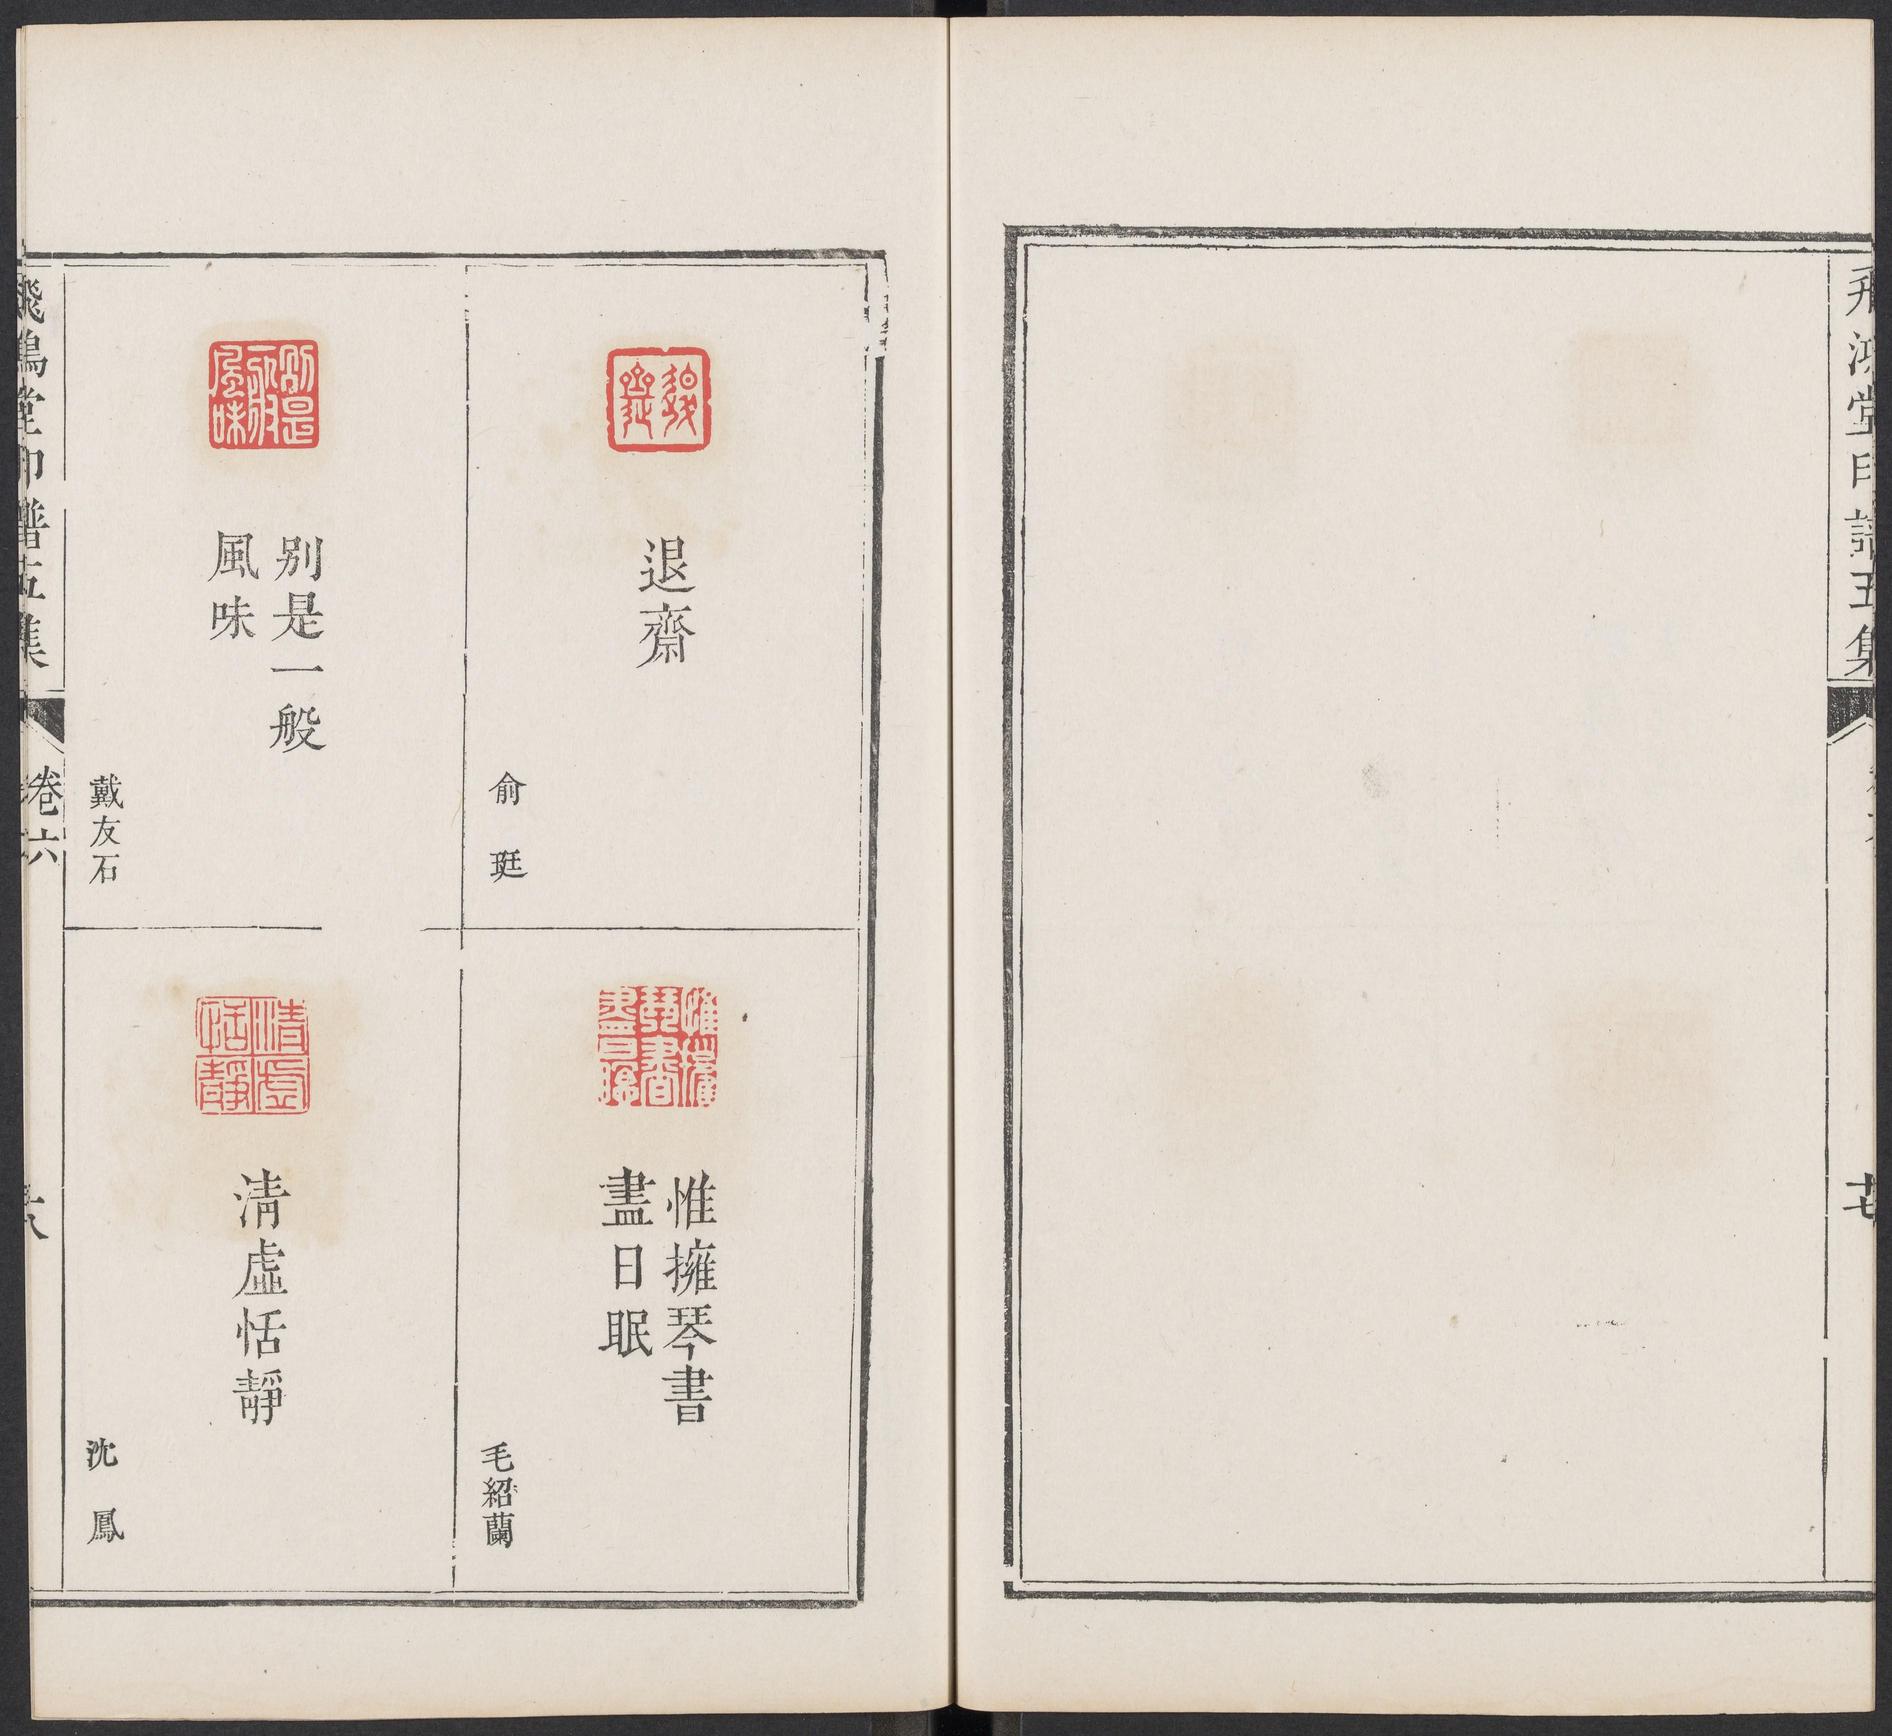 飛鴻堂印譜五集
退齋
俞珽
惟擁琴書
盡日眠
毛紹蘭
别是一般
風味
戴友石
淸虛恬靜
沈鳳
飛鴻堂印譜五集
卷六